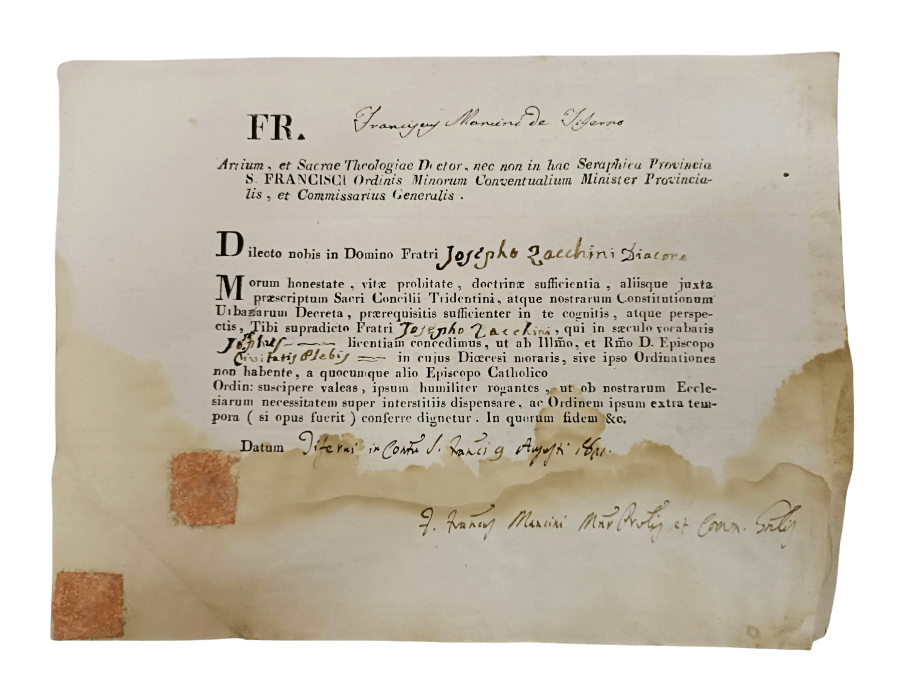 FR. Franciscus Mancini de Tiferno
Artium, et Sacrae Theologiae Doctor, nec non in hac Seraphica Provincia
S. FRANCISCI Ordinis Minorum Conventualium Minister Provincia-
lis, et Commissarius Generalis.
Dilecto nobis in Domino Fratri Josepho Zacchini Diacono
Morum honestate, vitæ probitate, doctrinæ sufficientia, aliisque juxta
præscriptum Sacri Concilii Tridentini, atque nostrarum Constitutionum
Urbanarum Decreta, prærequisitis sufficienter in te cognitis, atque perspe-
ctis, Tibi supradicto Fratri Josepho Zacchini, qui in sæculo vocabaris
licentiam concedimus, ut ab Illm̃o, et Rm̃o D. Episcopo
Civitatis Plebis in cujus Diœcesi moraris, sive ipso Ordinationes
non habente, a quocumque alio Episcopo Catholico
Ordin: suscipere valeas, ipsum humiliter rogantes, ut ob nostrarum Eccle-
siarum necessitatem super interstitiis dispensare, ac Ordinem ipsum extra tem-
pora ( si opus fuerit ) conferre dignetur. In quorum fidem &c.
Datum Tiferni in S. 9 Augusti
F. Mancini et Comm.